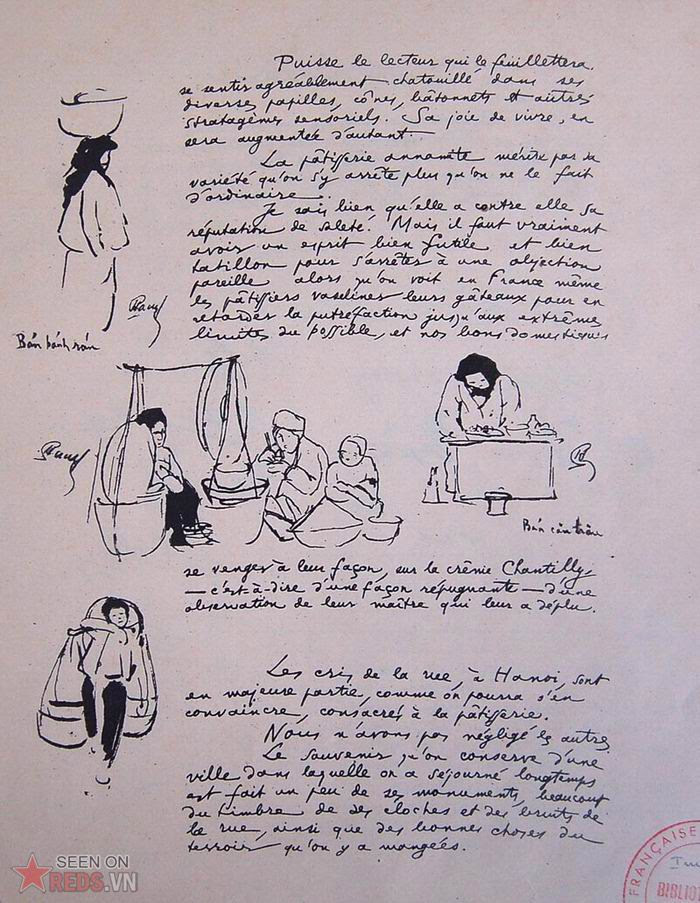 Puisse le lecteur qui le feuillettera
se sentir agréablement chatouillé dans ses
diverses papilles, cônes, bâtonnets et autres
stratagèmes sensoriels. Sa joie de vivre, en
sera augmentée d'autant.
La pâtisserie annamite mérite par sa
variété qu'on s'y arrête plus qu'on ne le fait
d'ordinaire.
Je sais bien qu'elle a contre elle sa
réputation de saleté. Mais il faut vraiment
avoir un esprit bien futile et bien
tatillon pour s'arrêter à une objection
pareille alors qu'on voit en France même
les pâtissiers vaseliner leurs gâteaux pour en
retarder la putréfaction jusqu'aux extrêmes
limites du possible, et nos bons domestiques
Bán bánh rán
Bán cắn
se venger à leur façon, sur la crème Chantilly,
— c'est-à-dire d'une façon répugnante — d'une
observation de leur maître qui leur a déplu.
Les cris de la rue, à Hanoi, sont
en majeure partie, comme on pourra s'en
convaincre, consacrés à la pâtisserie.
Nous n'avons pas négligé les autres
Le souvenir qu'on conserve d'une
ville dans laquelle on a séjourné longtemps
est fait un peu de ses monuments, beaucoup
du timbre de ses cloches et des bruits de
la rue, ainsi que des bonnes choses du
terroir qu'on y a mangées.
FRANÇAISE
BIBLIOT
SEEN ON
REDS.VN